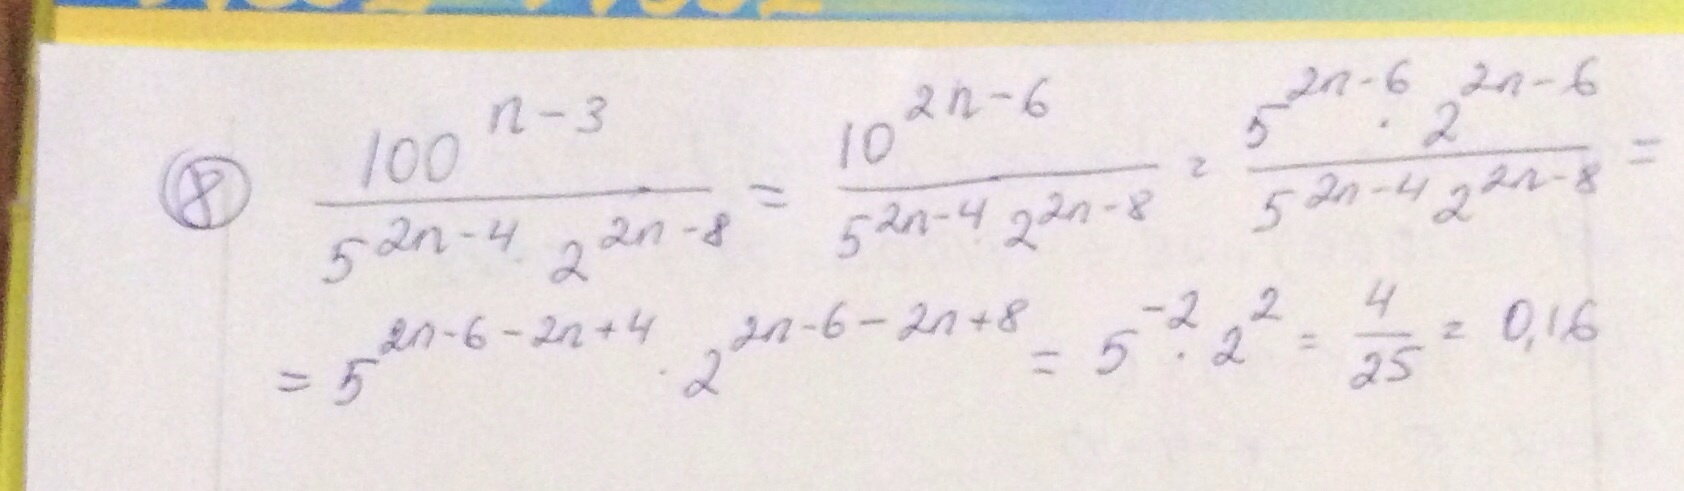 ⑧ 100^(n-3) / (5^(2n-4) · 2^(2n-8)) = 10^(2n-6) / (5^(2n-4) · 2^(2n-8)) = (5^(2n-6) · 2^(2n-6)) / (5^(2n-4) 2^(2n-8)) =
= 5^(2n-6-2n+4) · 2^(2n-6-2n+8) = 5^(-2) · 2^2 = 4/25 = 0,16